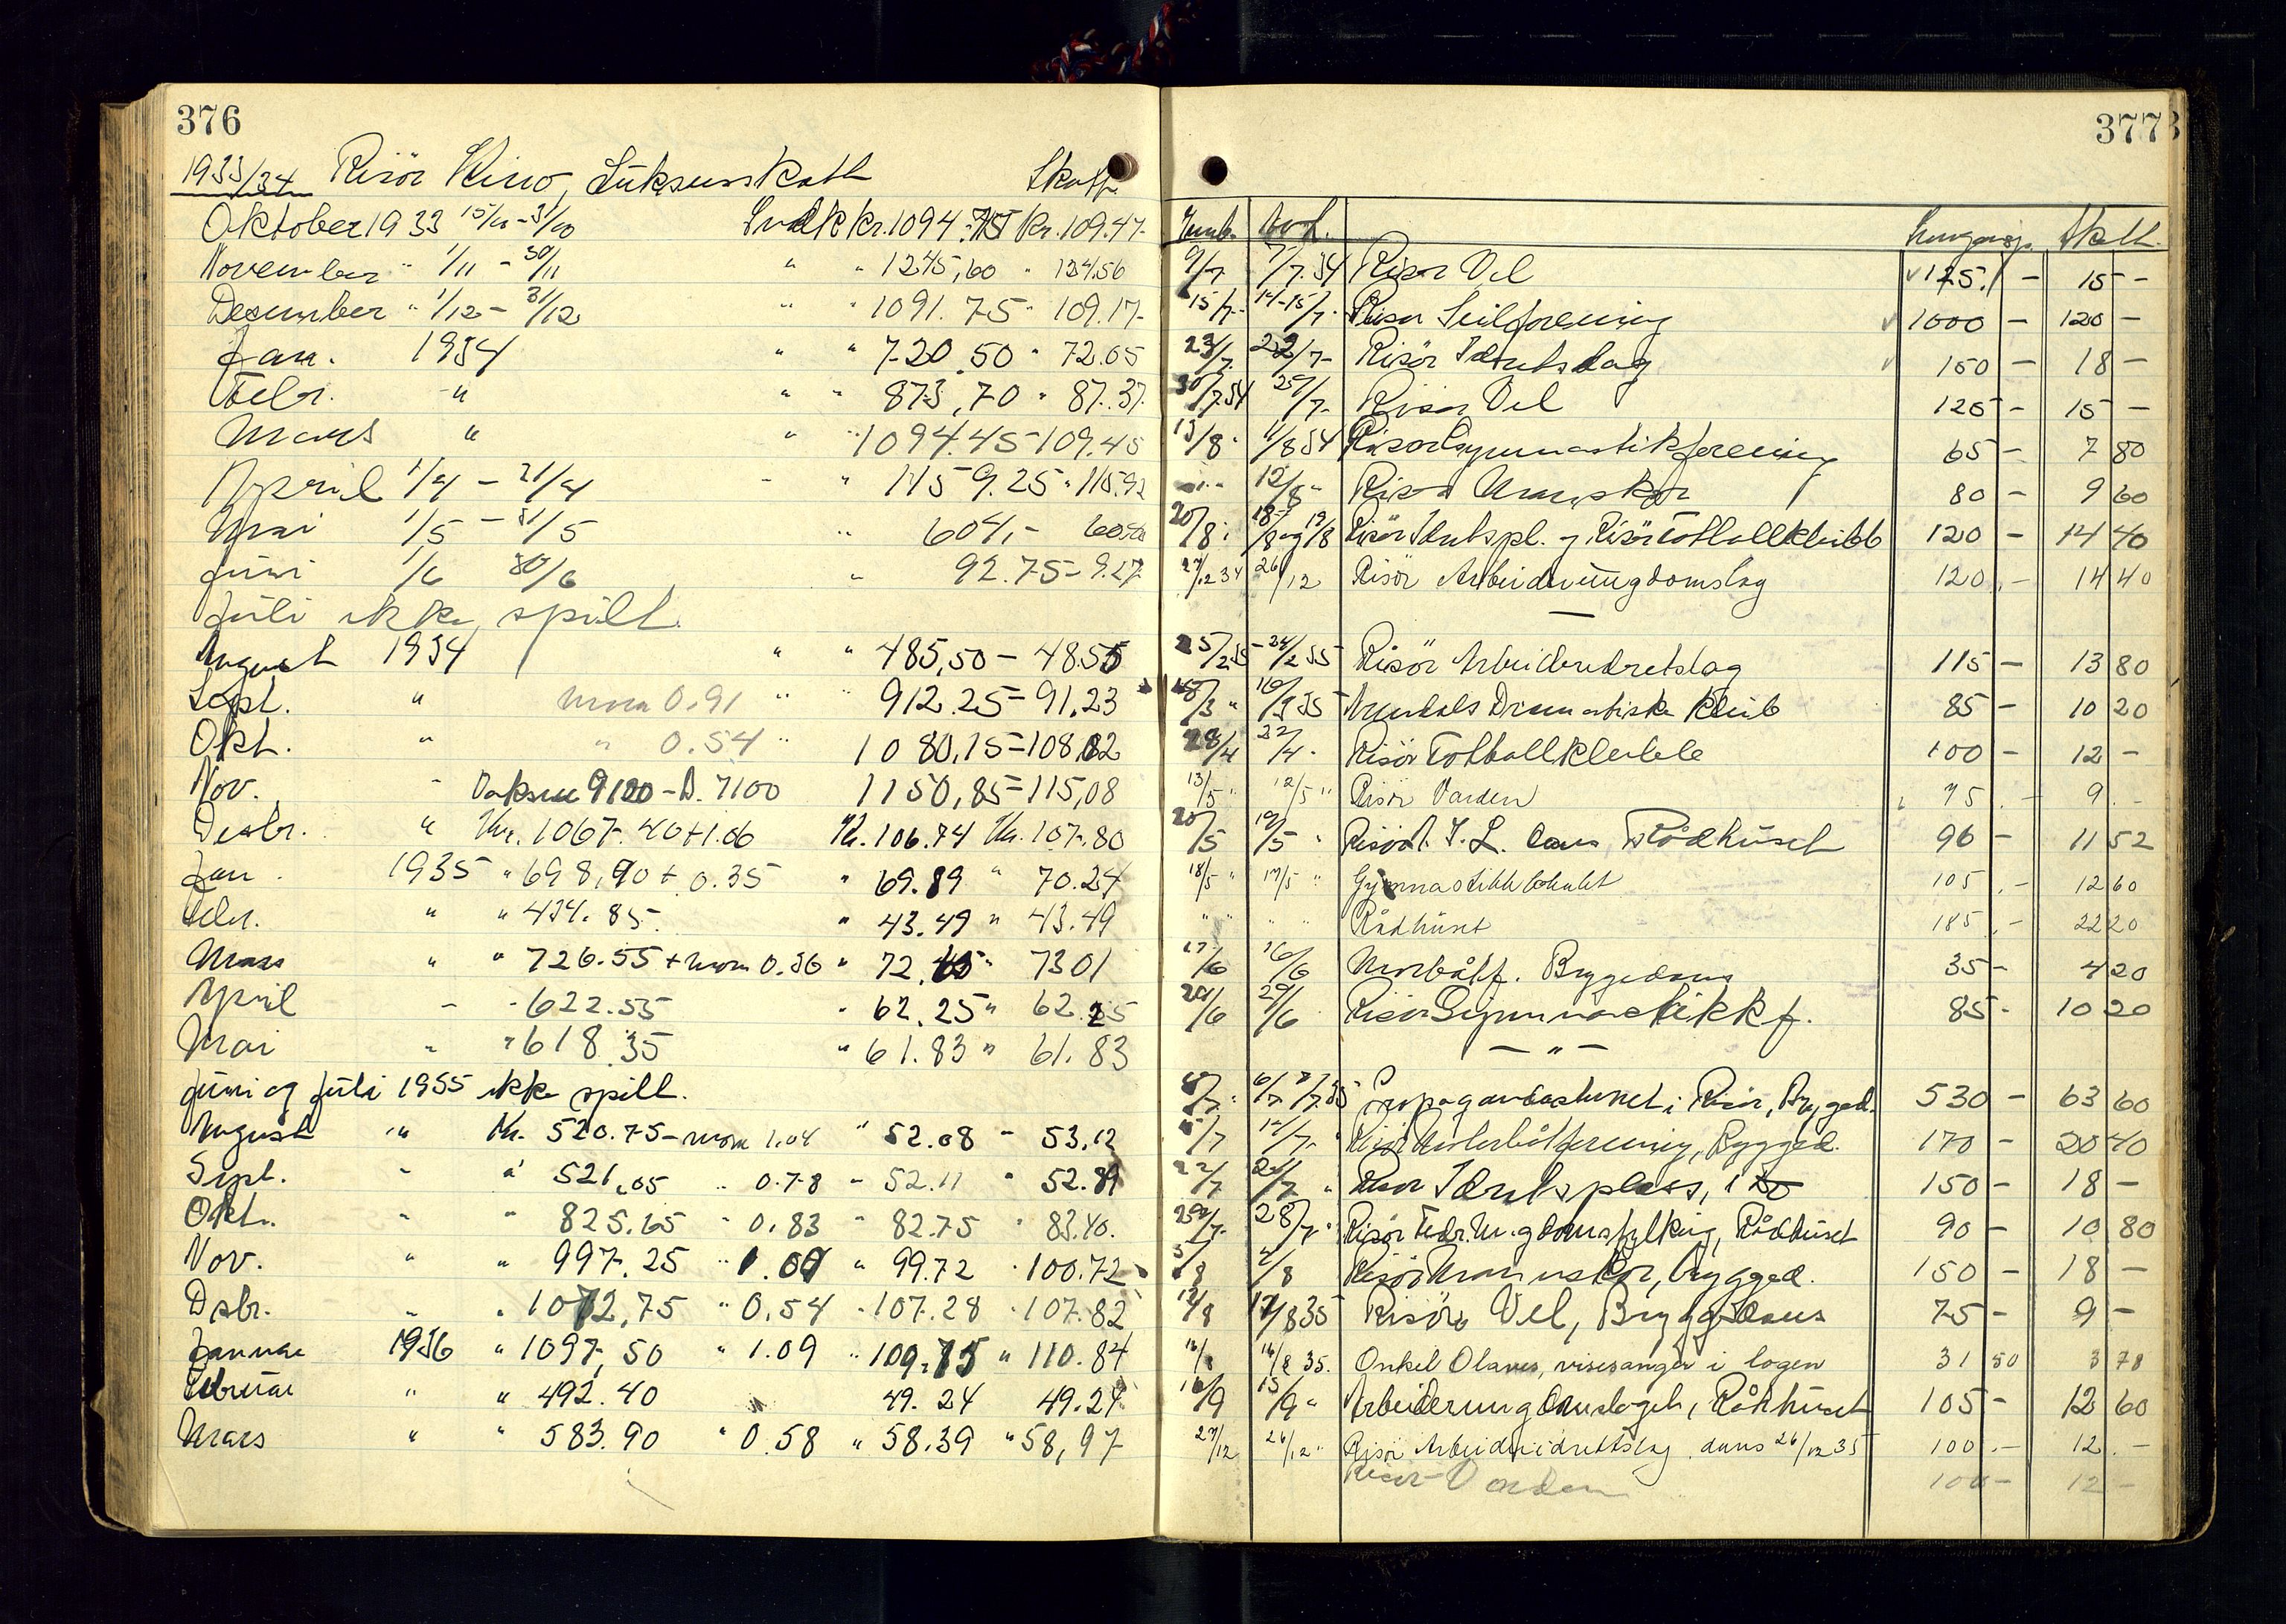 376
1933/34 Risör Kino, Luksusskatt Skatt
Oktober 1933 15/10 - 31/10 Kr. 1094.75 Kr. 109.47
November " 1/11 - 30/11 " " 1245,60 " 124,56
Desember " 1/12 - 31/12 " " 1091.75 " 109.17
Jan. 1934 " " 720.50 " 72.05
Febr. " " " 873,70 " 87.37
Mars " " " 1094.45 - 109.45
April 1/4 - 31/4 " " 1159.25 " 115.92
Mai 1/5 - 31/5 " 604,-
Juni 1/6 30/6 " 92.75 - 9.27
Juli ikke spilt.
August 1934 " " 485,50 - 48.55
Sept. " mora 0.91 " " 912.25 - 91.23
Okt. " " 0.54 " 1080,15 - 108,02
Nov. " Voksne 9120 - B. 7100 1150,85 - 115,08
Desbr. " Kr. 1067.40 + 1.06 Kr. 106.74 Kr. 107.80
Jan. 1935 " 698,90 + 0.35 " 69.89 " 70.24
Febr. " " 434.85 " 43.49 " 43.49
Mars " " 726.55 + mora 0.36 " 72.65 " 7301
April " " 622.55 " 62.25 " 62.25
Mai " " 618.35 " 61.83 " 61.83
Juni og Juli 1935 ikke spilt.
August " Kr. 520.75 - mora 1.04 " 52.08 - 53.12
Sept. " " 521,05 " 0.78 " 52.11 " 52.89
Okt. " " 825.65 " 0.83 " 82.75 " 83.40.
Nov. " " 997.25 " 1.00 " 99.72 " 100.72
Dsbr. " " 1072,75 " 0.54 " 107.28 " 107.82
Januar 1936 " 1097,50 " 1.09 " 109.75 " 110.84
Februar " " 492.40 " 49.24 49.24
Mars " " 583.90 " 0.58 " 58.39 " 58,97
377
Innb. Avh. Skatt
9/7 7/7.34 Risör Vel 125. - 15 -
15/7 14-15/7 Risör Seilforening 1000 - 120 -
23/7 22/7 Risör Idretslag 150 - 18 -
30/7.34 29/7 Risör Vel 125 - 15 -
13/8 11/8 34 Risör Gymnastikforening 65 - 7 80
12/8 " Risör Mannskor 80 - 9 60
20/8 18/8 og 19/8 Risör Idretspl. og Risör Fotballklubb 120 - 14 40
27/12 34 26/12 Risör Arbeiderungdomslag 120.- 14 40
25/2 35 - 24/2 35 Risör Arbeideridretslag 115 - 13 80
18/3 " 16/3 35 Arendals Dramatiske Klub 85 - 10 20
28/4 22/4 Risör Fotballklubb 100 - 12 -
13/5 " 12/5 " Risör Varden 75.- 9.-
20/5 19/5 " Risör A.I.L. dans, Rådhuset 96 - 11 52
18/5 " 17/5 " Gymnastikklokalet 105.- 12 60
" " " " Rådhuset 185.- 22 20
17/6 16/6 Motorbåtf. Bryggedans 35 - 4 20
29/6 Risör Gymnastikkf. 85 - 10 20
- " -
8/7 6/7 7/7.35 Propagandastevnet i Risör, Brygged. 530 - 63 60
15/7 14/7 " Risör Motorbåtforening, Brygged. 170 - 20 40
22/7 " Risör Idretsplass, 150 - 18 -
29/7 28/7 " Risör Fedr. Ungdomsfylking, Rådhuset 90 - 10 80
5/8 4/8 Risör Mannskor, brygged. 150 - 18 -
12/8 35 Risör Vel, Bryggedans 75 - 9 -
16/8 16/8 35. Onkel Olaves, visesanger i logen 31 50 3 78
16/9 15/9 " Arbeiderungdomslaget, Rådhuset 105 - 12 60
27/12 26/12 " Risör Arbeideridrettslag. dans 26/12 35 100.- 12.-
Risör Varden 100 - 12 -